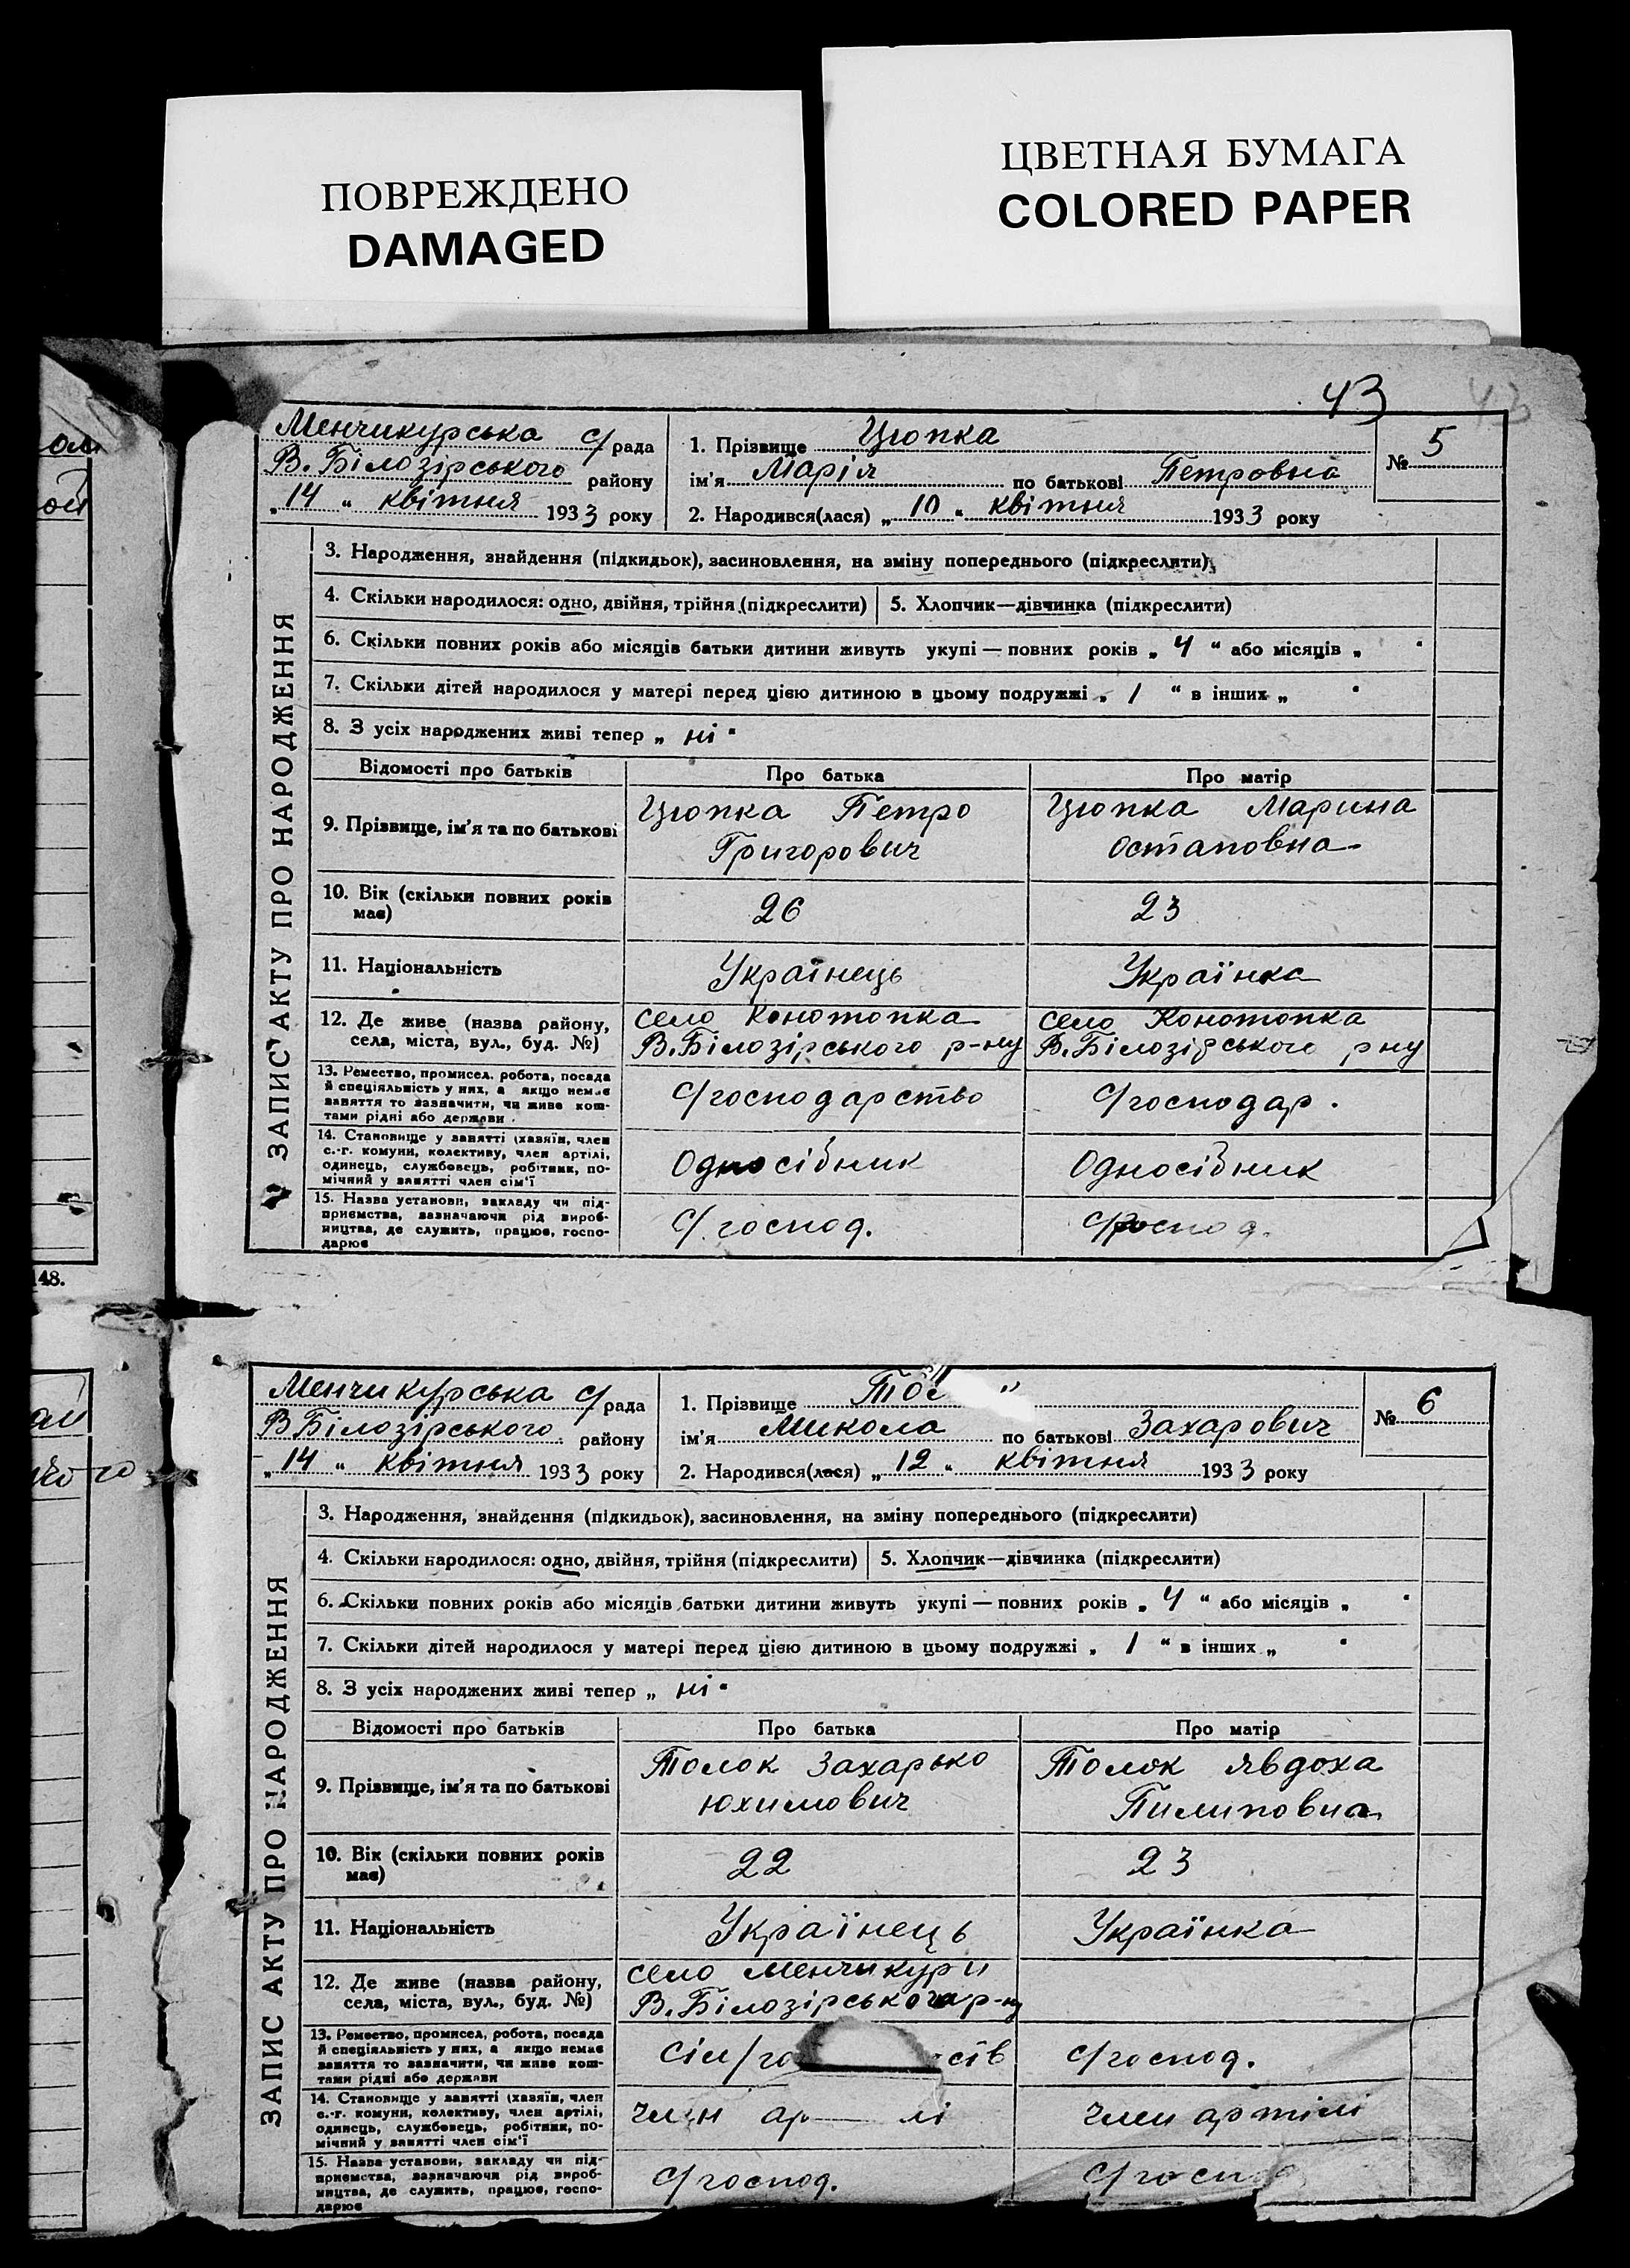 ПОВРЕЖДЕНО
DAMAGED
ЦВЕТНАЯ БУМАГА
COLORED PAPER
43
43
Менчикурська с/рада
В. Білозірського району
„14“ квітня 1933 року
1. Прізвище Цюпка
ім'я Марія по батькові Петровна
2. Народився(лася) „10“ квітня 1933 року
№ 5
ЗАПИС АКТУ ПРО НАРОДЖЕННЯ
3. Народження, знайдення (підкидьок), засиновлення, на зміну попереднього (підкреслити)
4. Скільки народилося: одно, двійня, трійня (підкреслити) 5. Хлопчик—дівчинка (підкреслити)
6. Скільки повних років або місяців батьки дитини живуть укупі — повних років „4“ або місяців „ “
7. Скільки дітей народилося у матері перед цією дитиною в цьому подружжі „1“ в інших „ “
8. З усіх народжених живі тепер „ні“
Відомості про батьків Про батька Про матір
9. Прізвище, ім'я та по батькові
Цюпка Петро
Григорович
Цюпка Марина
Остаповна
10. Вік (скільки повних років
має)
26
23
11. Національність
Українець
Українка
12. Де живе (назва району,
села, міста, вул., буд. №)
село Конотопка
В.Білозірського р-ну
село Конотопка
В.Білозірського рну
13. Ремество, промисел, робота, посада
й спеціяльність у них, а якщо немає
заняття то зазначити, чи живе кош-
тами рідні або держави
С/господарство
С/господар.
14. Становище у занятті (хазяїн, член
с.-г. комуни, колективу, член артілі,
одинець, службовець, робітник, по-
мічний у занятті член сім'ї
Односібник
Односібник
15. Назва установи, закладу чи під-
приємства, зазначаючи рід вироб-
ництва, де служить, працює, госпо-
дарює
С/господ.
С/господ.
148.
Менчикурська с/рада
В Білозірського району
„14“ квітня 1933 року
1. Прізвище
ім'я Микола по батькові Захарович
2. Народився(лася) „12“ квітня 1933 року
№ 6
ЗАПИС АКТУ ПРО НАРОДЖЕННЯ
3. Народження, знайдення (підкидьок), засиновлення, на зміну попереднього (підкреслити)
4. Скільки народилося: одно, двійня, трійня (підкреслити) 5. Хлопчик—дівчинка (підкреслити)
6. Скільки повних років або місяців батьки дитини живуть укупі — повних років „4“ або місяців „ “
7. Скільки дітей народилося у матері перед цією дитиною в цьому подружжі „1“ в інших „ “
8. З усіх народжених живі тепер „ні“
Відомості про батьків Про батька Про матір
9. Прізвище, ім'я та по батькові
Толок Захарько
Юхимович
Толок Явдоха
Пилиповна
10. Вік (скільки повних років
має)
22
23
11. Національність
Українець
Українка
12. Де живе (назва району,
села, міста, вул., буд. №)
село Менчикури
В.Білозірського р-ну
13. Ремество, промисел, робота, посада
й спеціяльність у них, а якщо немає
заняття то зазначити, чи живе кош-
тами рідні або держави
С/господ.
14. Становище у занятті (хазяїн, член
с.-г. комуни, колективу, член артілі,
одинець, службовець, робітник, по-
мічний у занятті член сім'ї
член
член артілі
15. Назва установи, закладу чи під-
приємства, зазначаючи рід вироб-
ництва, де служить, працює, госпо-
дарює
С/господ.